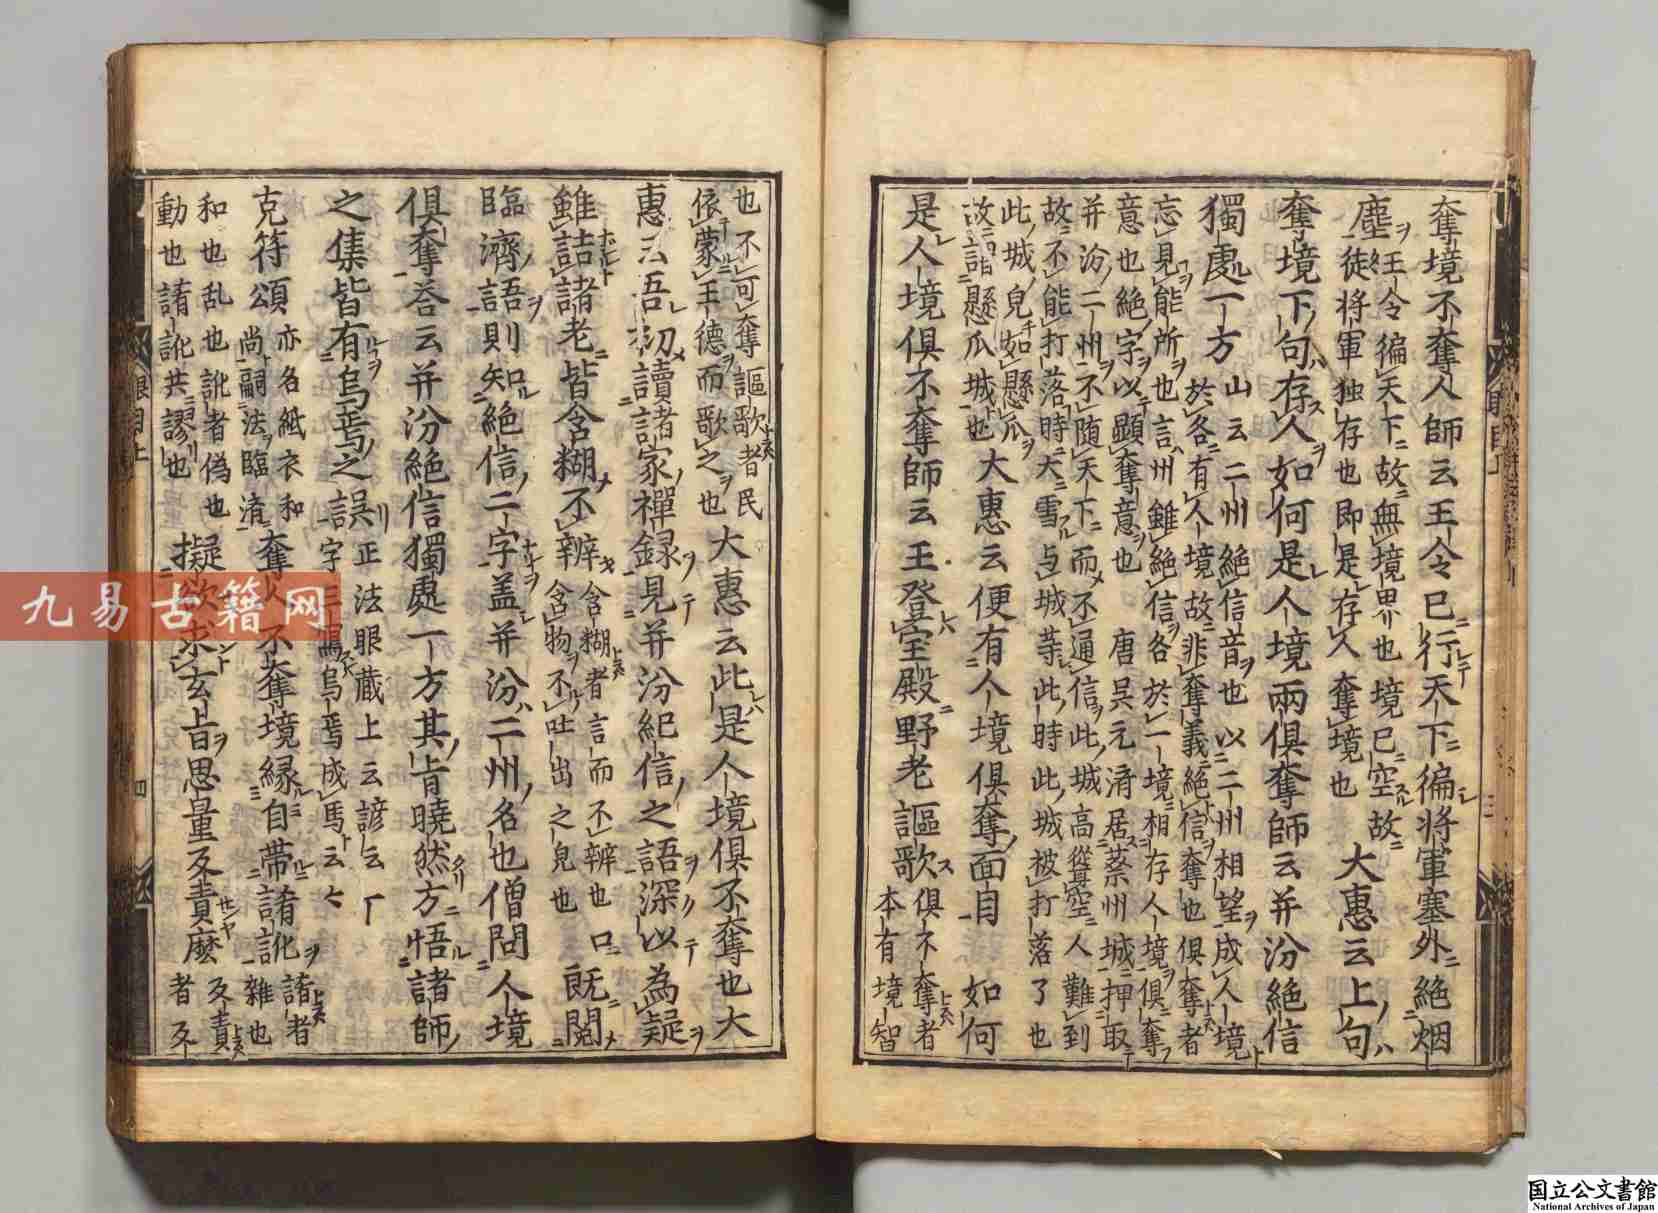 奪境不奪人師云王令已行天下徧將軍塞外絶烟
塵王令徧天下故無境界也境已空故
徒將軍独存也即是存人奪境也
大惠云上句
奪境下句存人如何是人境兩俱奪師云并汾絶信
獨處一方
山云二州絶信音也以二州相望成人境
於各有人境故非奪義絶信奪也俱奪者
忘見能所也言州雖絶信各於一境相存人境俱奪
意也絶字以顕奪意也
唐呉元済居蔡州城押取
并汾二州不随天下而不通信此城高聳空人難到
故不能打落時大雪与城等此時此城被打落了也
此城皃如懸瓜
故詣懸瓜城也
大惠云便有人境俱奪面目
如何
是人境俱不奪師云王登宝殿野老謳歌
俱不奪者
本有境智
也不可奪謳歌者民
依蒙王德而歌之也
大惠云此是人境俱不奪也大
惠云吾初讀諸家禪録見并汾紀信之語深以為疑
雖詰諸老皆含糊不辨
含糊者言而不辨也口
含物不吐出之皃也
既閲
臨濟語則知絶信二字盖并汾二州名也僧問人境
俱奪荅云并汾絶信獨處一方其旨曉然方悟諸師
之集皆有烏焉之誤
正法眼蔵上云諺云
字三寫烏焉成馬云々
克符頌
亦名紙衣和
尚嗣法臨済
奪人不奪境縁自帶誵訛
誵者
雜也
和也乱也訛者偽也
動也誵訛共謬也
擬欲求玄旨思量反責麽
反責
者反
眼目上
四
九易古籍网
国立公文書館
National Archives of Japan